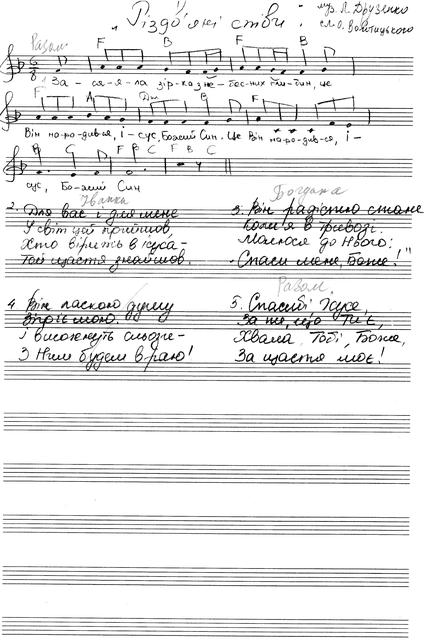 "Різдв'яні стіви"
муз. Л. Друзенко
сл. О. Войтицького
Разом.
F B F B
За - ся - я - ла зір - ка з не - бес - них гли - бин, це
F A Dm B D
Він на - ро - див - ся, І - сус, Божий Син. Це Він на - ро - див - ся, І -
B C F B C F B C
сус, Бо - жий Син
Іванка
2. Для вас і для мене
У світ цей прийшов,
Хто вірить в Ісуса -
Той щастя знайшов.
Богдана
3. Він радістю стане
Коли я в тривозі.
Молюся до Нього:
"Спаси мене, Боже!"
4. Він ласкою душу
Зігріє мою.
І висохнуть сльози -
З Ним будем в раю!
Разом.
5. Спасибі Ісусе,
За те, що Ти є,
Хвала Тобі, Боже,
За щастя моє!